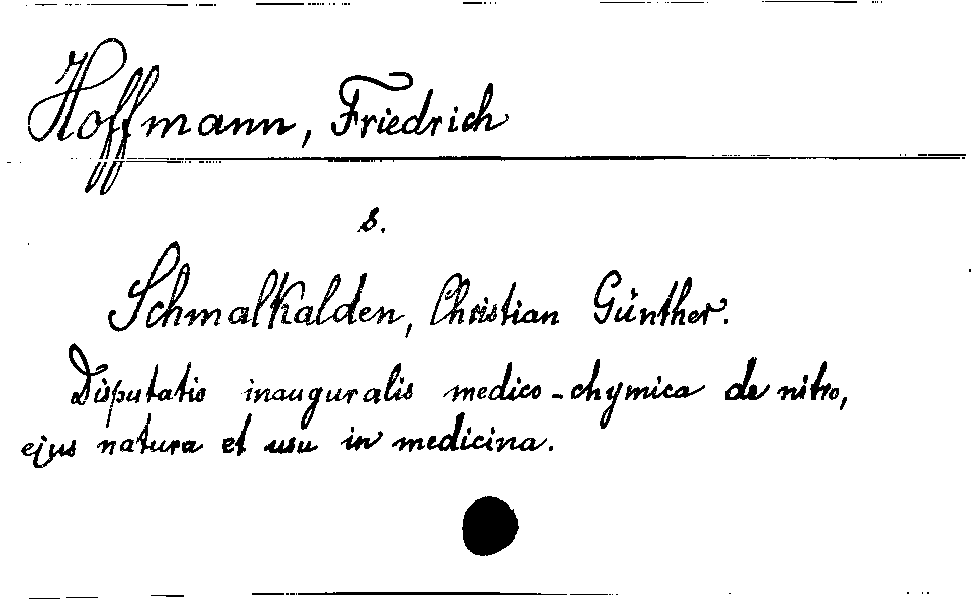 Hoffmann, Friedrich
s.
Schmalkalden, Christian Günther.
Disputatio inauguralis medico-chymica de nitro,
ejus natura et usu in medicina.